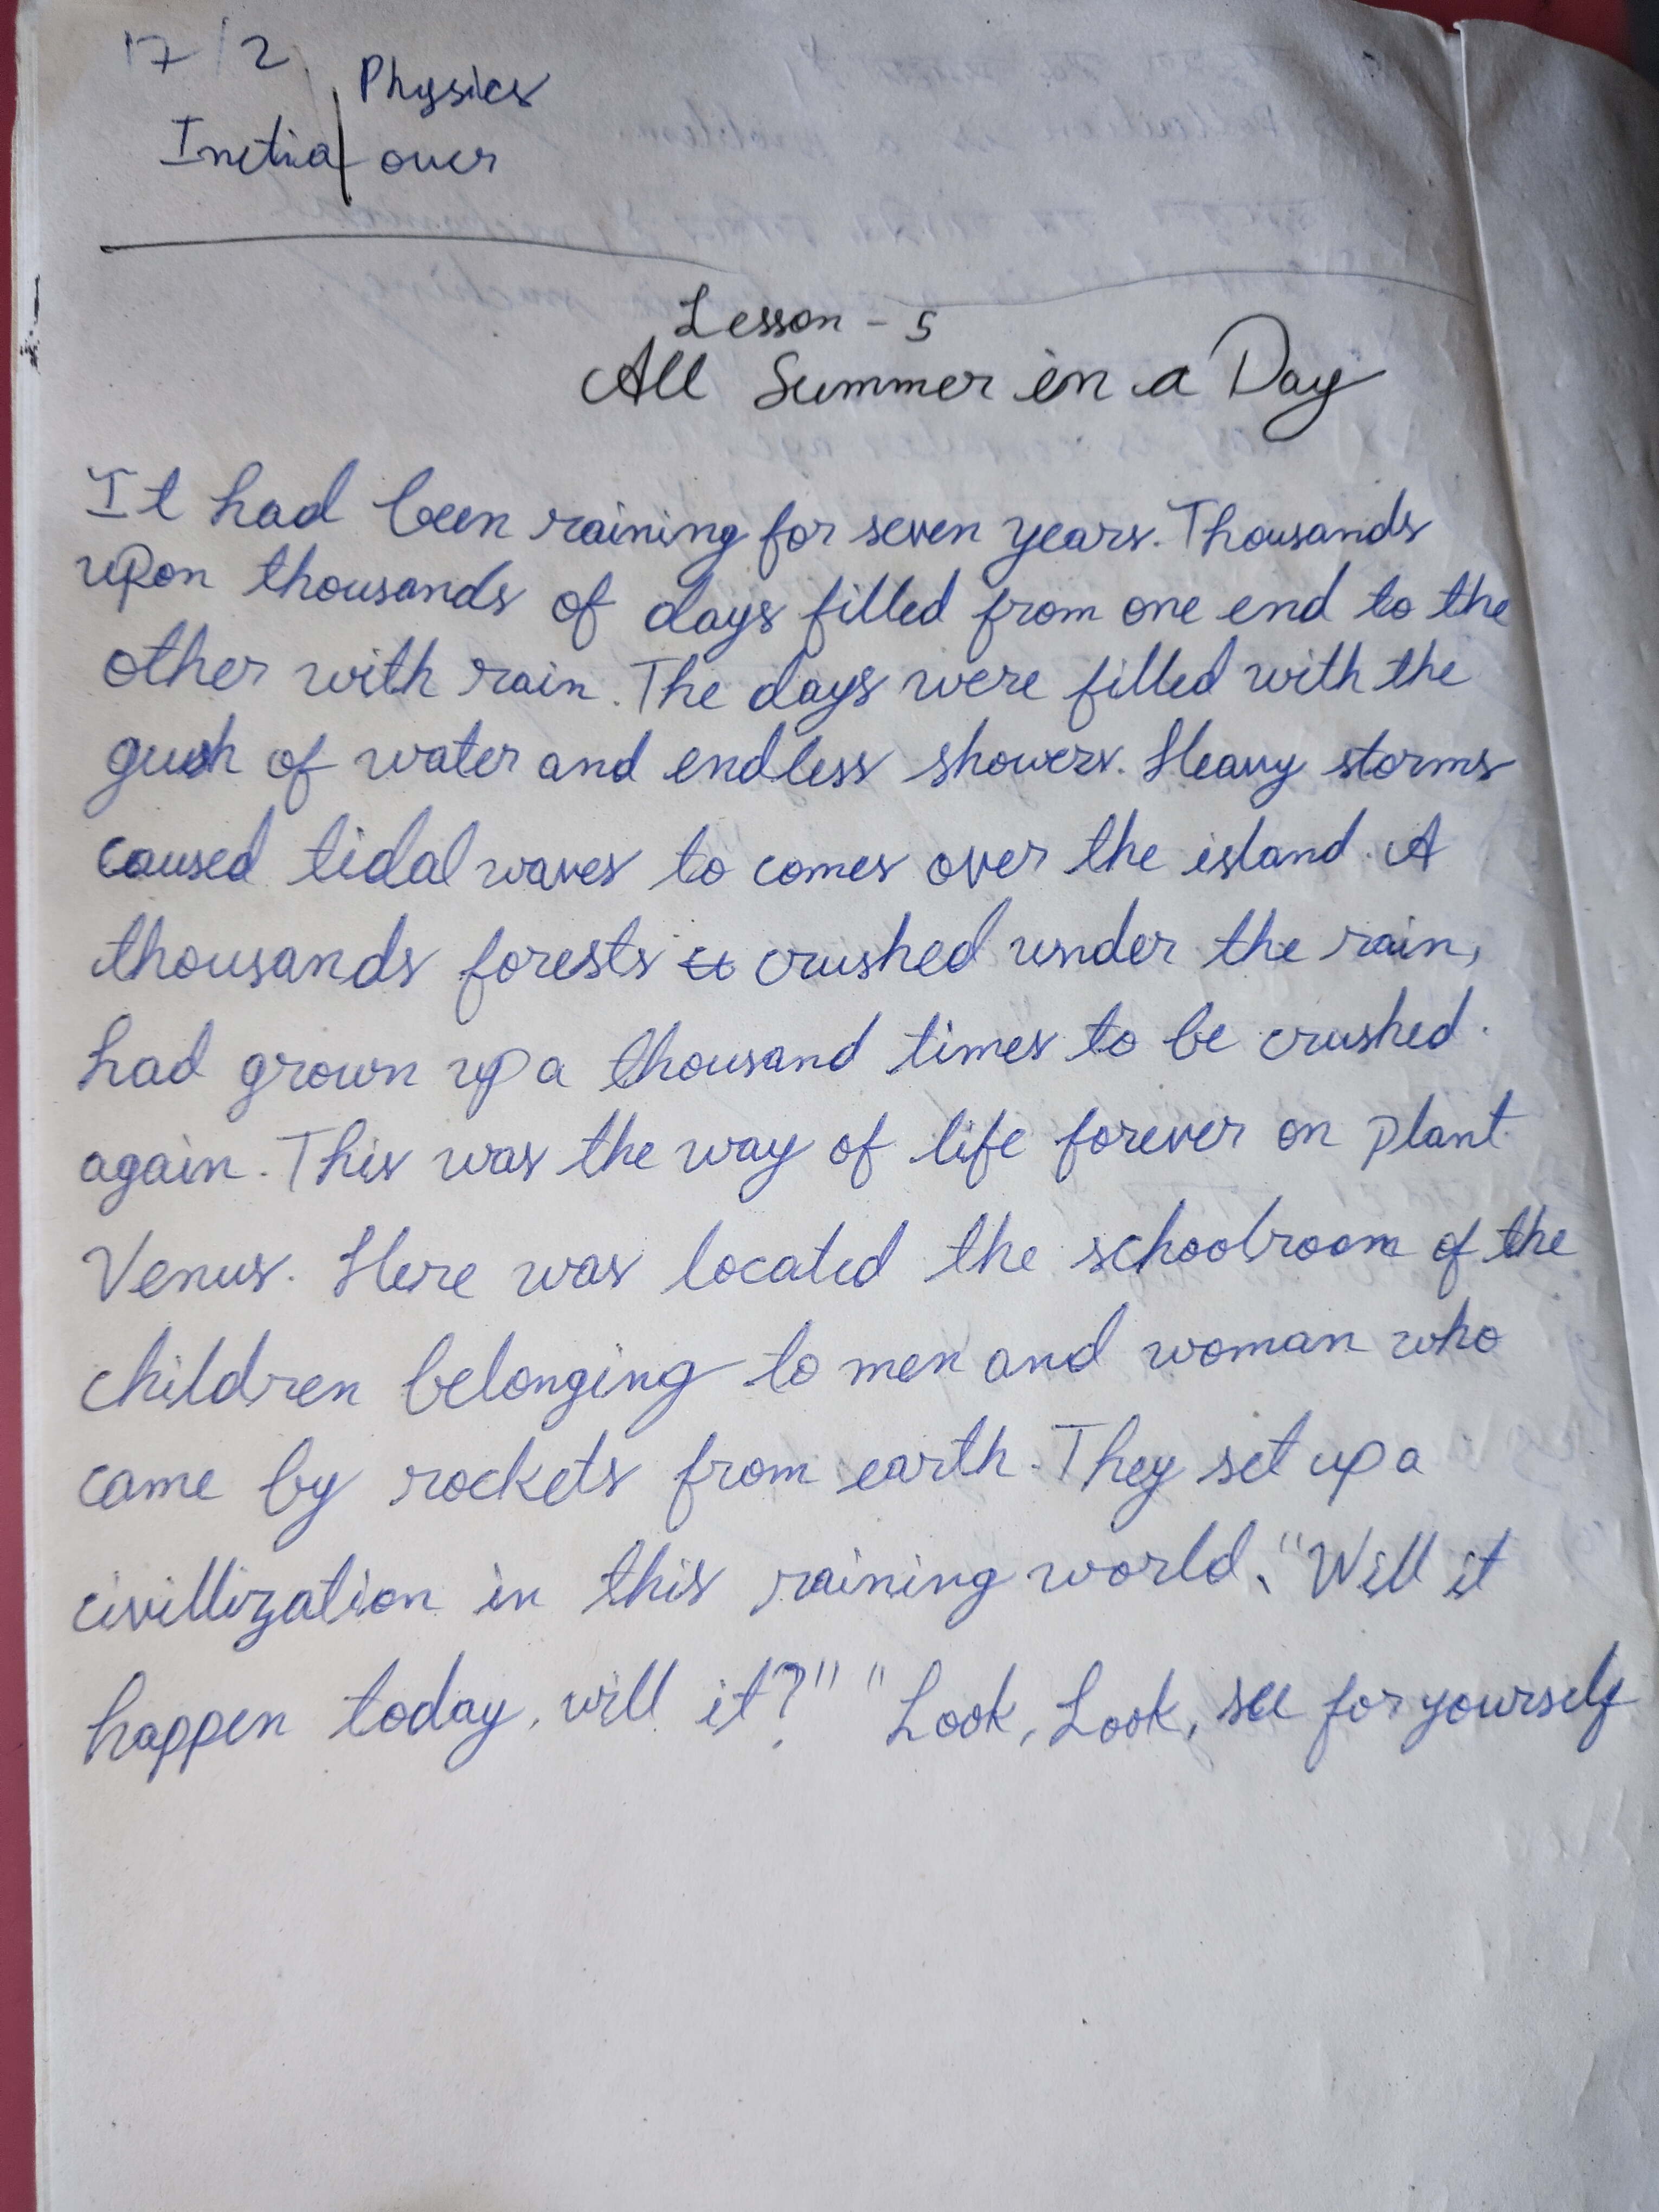 17/2
Physics
Inetia over
Lesson - 5
All Summer in a Day
It had been raining for seven years. Thousands
upon thousands of days filled from one end to the
other with rain. The days were filled with the
gush of water and endless showers. Heavy storms
caused tidal waves to comes over the island. A
thousands forests crushed under the rain,
had grown up a thousand times to be crushed.
again. This was the way of life forever on plant
Venus. Here was located the schoolroom of the
children belonging to men and woman who
came by rockets from earth. They set up a
civillization in this raining world. "Will it
happen today, will it?" "Look, Look, see for yourself